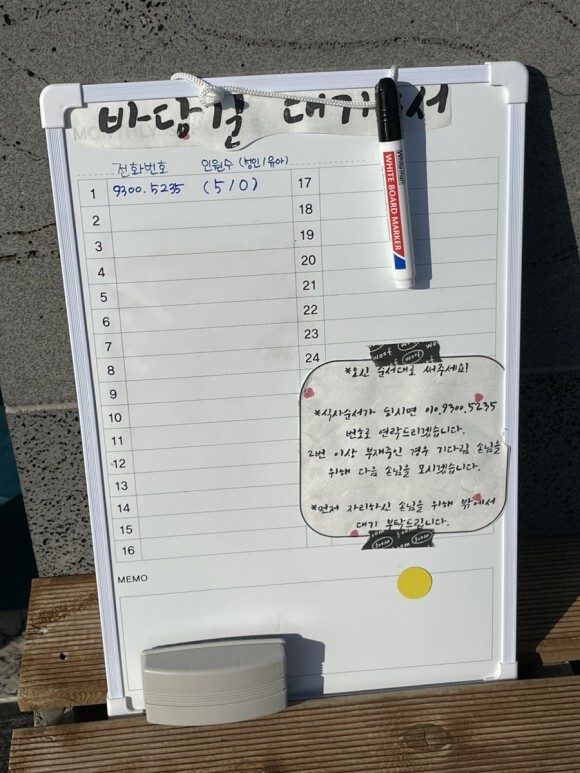 바당길 대기순서
전화번호 인원수 (성인/유아)
1 9300.5235 (5/0)
2
3
4
5
6
7
8
9
10
11
12
13
14
15
16
17
18
19
20
21
22
23
24
WHITE BOARD MARKER
woof woof
*오신 순서대로 써주세요!
*식사순서가 되시면 010.9300.5235
번호로 연락드리겠습니다.
2번 이상 부재중인 경우 기다림 손님을
위해 다음 손님을 모시겠습니다.
*먼저 자리하신 손님을 위해 밖에서
대기 부탁드립니다.
MEMO